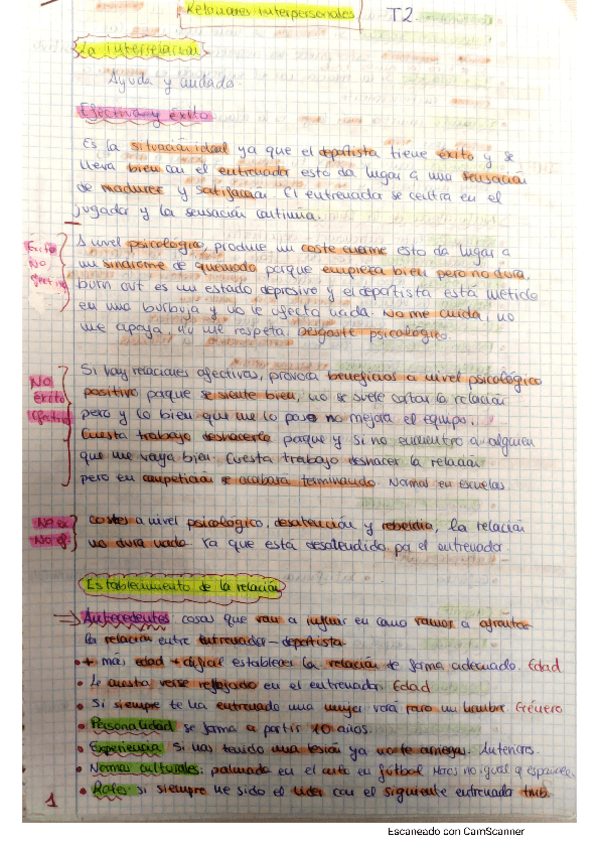 Relaciones interpersonales T2.
La interrelación
Ayuda y cuidado.
Efectiva y éxito
Es la situación ideal ya que el deportista tiene éxito y se
lleva bien con el entrenador esto da lugar a una sensación
de madurez y satisfacción. El entrenador se centra en el
jugador y la sensación continua.
Éxito
No
efectiva
A nivel psicológico, produce un coste enorme esto da lugar a
un síndrome de quemado porque empieza bien pero no dura.
burn out es un estado depresivo y el deportista está metido
en una burbuja y no le afecta nada. No me cuida, no
me apoya, no me respeta. Desgaste psicológico.
No
éxito
efectiva
Si hay relaciones afectivas, provoca beneficios a nivel psicológico
positivo porque se siente bien, no se suele cortar la relación
pero y lo bien que me lo paso no mejora el equipo.
Cuesta trabajo deshacerla porque y si no encuentro a alguien
que me vaya bien. Cuesta trabajo deshacer la relación
pero en competición se acabará terminando. Normal en escuelas.
No éx.
No ef.
costes a nivel psicológico, desatención y rebeldía, la relación
no dura nada ya que está desatendido por el entrenador.
Establecimiento de la relación
⇒ Antecedentes: cosas que van a influir en como vamos a afrontar
la relación entre entrenador-deportista.
• + más edad + difícil establecer la relación de forma adecuada. Edad
• Le cuesta verse reflejado en el entrenador. Edad
• Si siempre te ha entrenado una mujer verá raro un hombre. Género
• Personalidad se forma a partir 10 años.
• Experiencia: Si has tenido una lesión ya no te arriesgas. Anteriores.
• Normas culturales: palmada en el culo en fútbol. no igual q españoles.
• Roles: si siempre he sido el líder con el siguiente entrenador tmb.
1
Escaneado con CamScanner